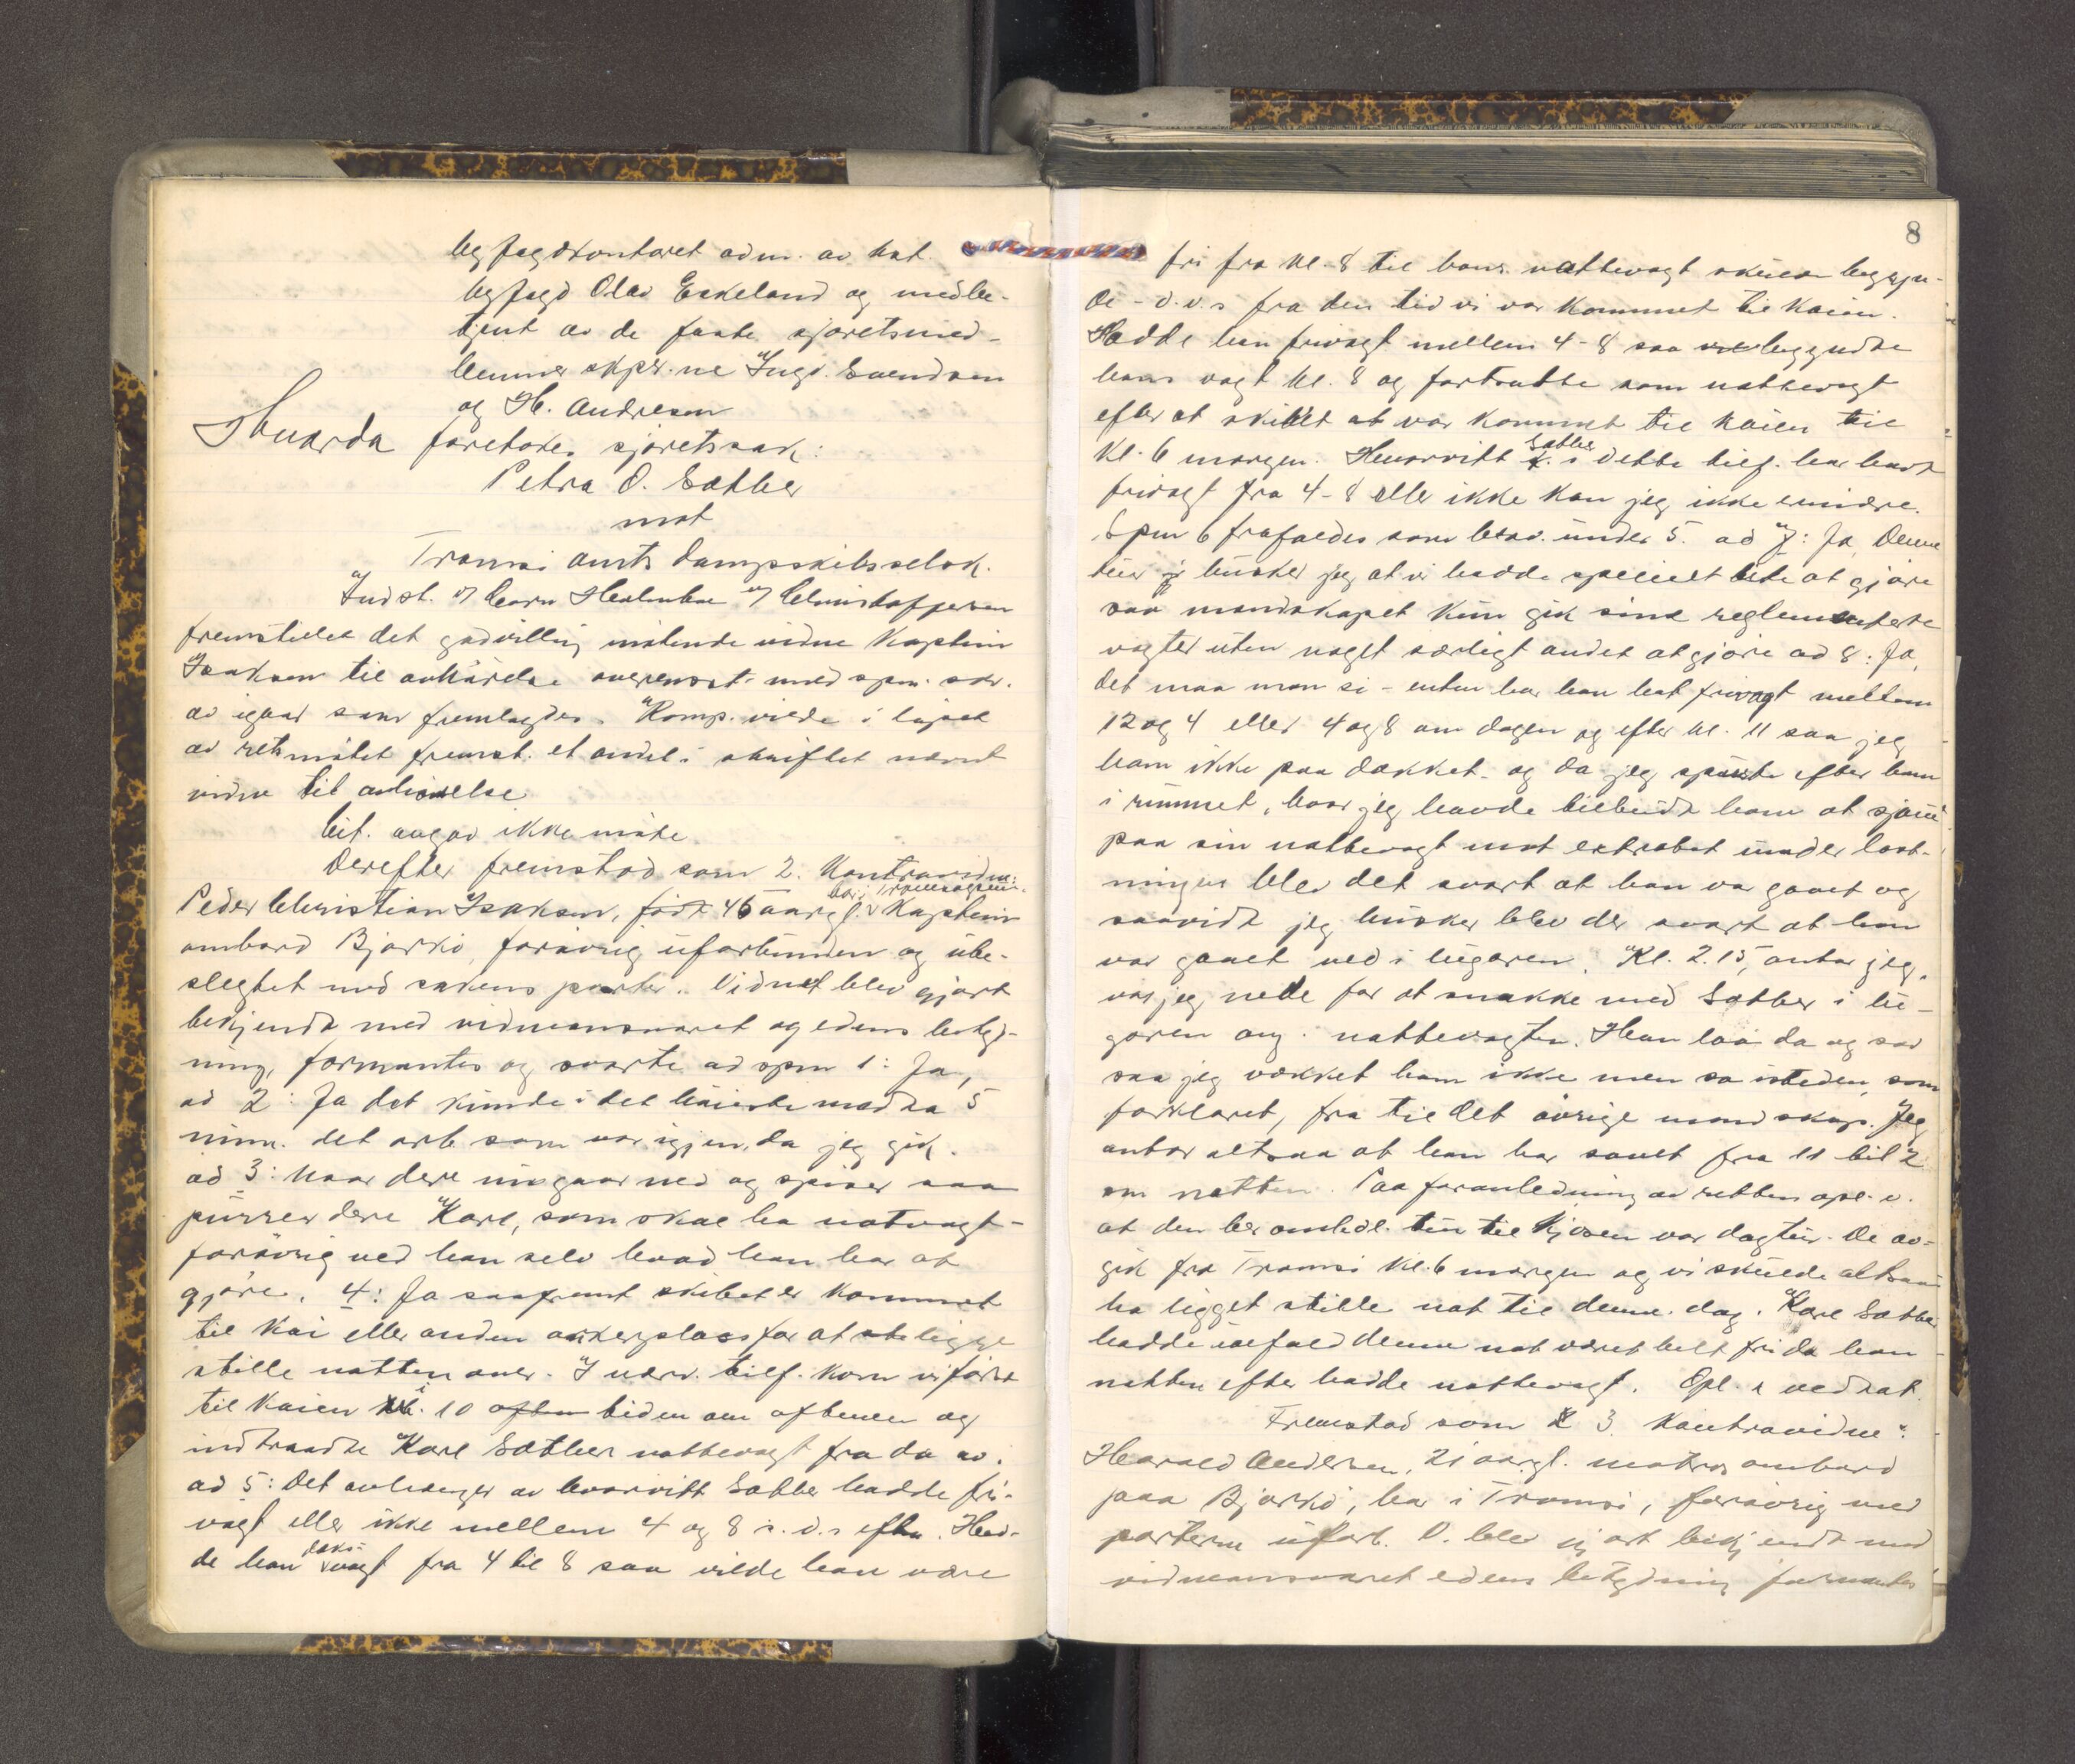 byfogdkontoret adm. av kst.
byfogd Olav Eskeland og medbe-
tjent av de faste sjøretsmed-
lemmer skpr.ne Ingv. Svendsen
og H. Andresen
Hvorda foretokes sjøretssak:
Petra O. Sæther
mot
Tromsø amts dampskibsselsk.
Indst. v/ Hornholm v/ Christoffersen
fremstillet det godvillig møtende vidne Kaptein
Isaksen til avhørelse overensst. med spm. skr.
av igaar som fremlagdes. Komp. vilde i løpet
av retsmøtet fremst. et andet i skriftet nævnt
vidne til avhørelse
Cit. angav ikke møte
Derefter fremstod som 2. Kontravidne:
Peder Christian Isaksen, født 46 aar gl. bor i Tromsøysun. Kaptein
ombord Bjarkø, forøvrig uforbunden og ube-
slegtet med sakens parter. Vidnet blev gjort
bekjendt med vidneansvaret og edens betyd-
ning, formantes og svarte ad spm 1: Ja,
ad 2: Ja det kunde i det høieste medta 5
min. det arb. som var igjen, da jeg gik.
ad 3: Naar dere nu gaar ned og spiser saa
purrer dere Karl, som skal ha natvagt -
forøvrig ved han selv hvad han har at
gjøre. 4: Ja saafremt skibet er kommet
til kai eller anden ankerplass for at ligge
stille natten over. I nærv. tilf. kom vi først
til kaien i 10 tiden om aftenen og
indtraadte Karl Sæthers nattevagt fra da av.
ad 5: Det avhænger av hvorvitt Sæther hadde fri-
vagt eller ikke mellem 4 og 8 i. d. s eftm. Had-
de han dæks- vagt fra 4 til 8 saa vilde han være
8
fri fra kl. 8 til hans nattevagt skulde begyn-
de - d.v.s fra den tid vi var kommet til kaien.
Hadde han frivagt mellem 4-8 saa begyndte
hans vagt kl. 8 og fortsatte som nattevagt
efter at skibet var kommet til kaien til
kl. 6 morgen. Hvorvitt Sæther i dette tilf. har havt
frivagt fra 4-8 eller ikke kan jeg ikke erindre.
Spm 6 frafaldes som besv. under 5. ad 7: Ja, Denne
tur husker jeg at vi hadde specielt lite at gjøre
saa mandskapet kun gik sine reglementerte
vagter uten noget særligt andet at gjøre ad 8: Ja,
det maa man si - enten har han hat frivagt mellem
12 og 4 eller 4 og 8 om dagen og efter kl. 11 saa jeg
ham ikke paa dækket - og da jeg spurte efter ham
i rummet, hvor jeg havde tilbudt ham at sjaue
paa sin nattevagt mot extrabet. under last-
ningen blev det svart at han var gaaet og
saavidt jeg husker blev der svart at han
var gaaet ned i lugaren. Kl. 2.15, antar jeg,
var jeg nede for at snakke med Sæther i lu-
garen ang. nattevagten. Han laa da og sov
saa jeg vækket ham ikke men sa isteden, som
forklaret, fra til det øvrige mandskap. Jeg
antar altsaa at han har sovet fra 11 til 2
om natten. Paa foranledning av retten opl. v.
at den her omhdl. tur til Kjosen var dagtur. De av-
gik fra Tromsø kl. 6 morgen og vi skulde altsaa
ha ligget stille nat til denne dag. Karl Sæther
hadde ialfald denne nat været helt fri da han
natten efter hadde nattevagt. Opl. & vedtat.
Fremstod som 3. Kontravidne:
Harald Andersen, 21 aar gl. matros ombord
paa Bjarkø, bor i Tromsø, forøvrig med
parterne uforb. V. blev gjort bekjendt med
vidneansvaret edens betydning formantes